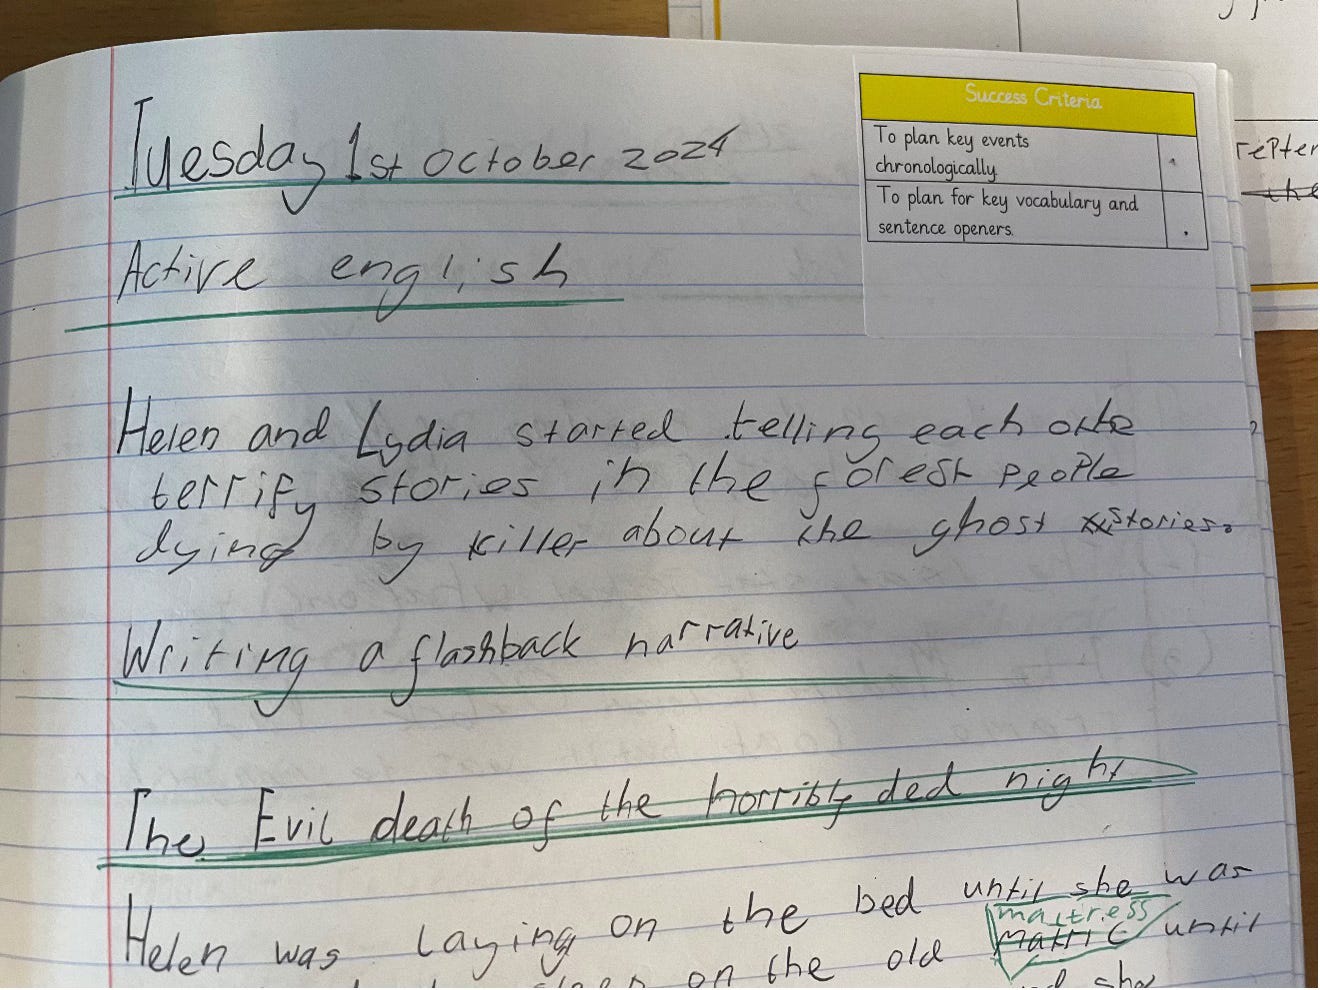 Tuesday 1st October 2024
Success Criteria
To plan key events
chronologically.
To plan for key vocabulary and
sentence openers.
Active english
Helen and Lydia started telling each
terrify stories in the forest people
dying by killer about the ghost stories.
Writing a flashback narrative
The Evil death of the horribly ded night
Helen was laying on the bed until she was
mattress
on the old matric until
she